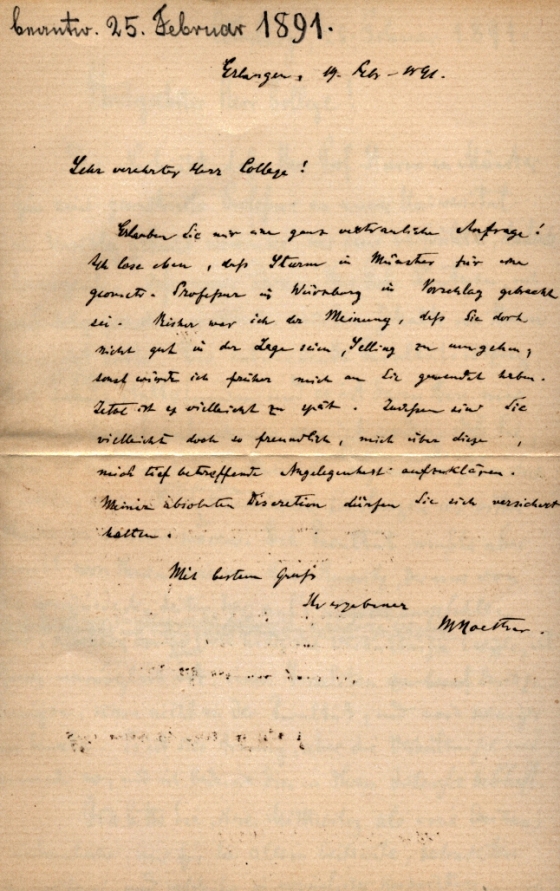 beantw. 25. Februar 1891.
Erlangen, 19. Febr. 1891.
Sehr verehrter Herr College!
Erlauben Sie mir eine ganz vertrauliche Anfrage!
Ich lese eben, daß Sturm in Münster für eine
geometr. Professur in Würzburg in Vorschlag gebracht
sei. Bisher war ich der Meinung, daß Sie doch
nicht gut in der Lage seien, Selling zu umgehen,
sonst würde ich früher mich an Sie gewendet haben.
Jetzt ist es vielleicht zu spät. Indessen sind Sie
vielleicht doch so freundlich, mich über diese,
mich tief betreffende Angelegenheit aufzuklären.
Meiner absoluten Discretion dürfen Sie sich versichert
halten.
Mit bestem Gruß
Ihr ergebener
MNoether.